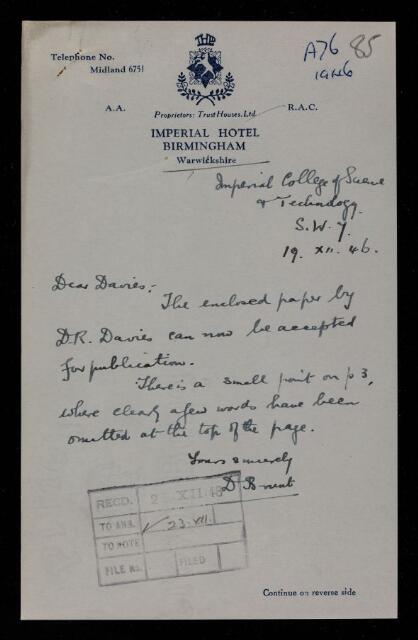 Telephone No.
Midland 6751
A76 85
1946
A.A.
R.A.C.
Proprietors: Trust Houses, Ltd.
IMPERIAL HOTEL
BIRMINGHAM
Warwickshire
Imperial College of Science
& Technology.
S.W.7.
19. XII. 46.
Dear Davies:
The enclosed paper by
D.R. Davies can now be accepted
for publication.
There is a small point on p 3,
where clearly a few words have been
omitted at the top of the page.
Yours sincerely
D Brunt
RECD. 2 XII 46
TO ANS. ✓ 23. XII.
TO NOTE
FILE No. FILED
Continue on reverse side